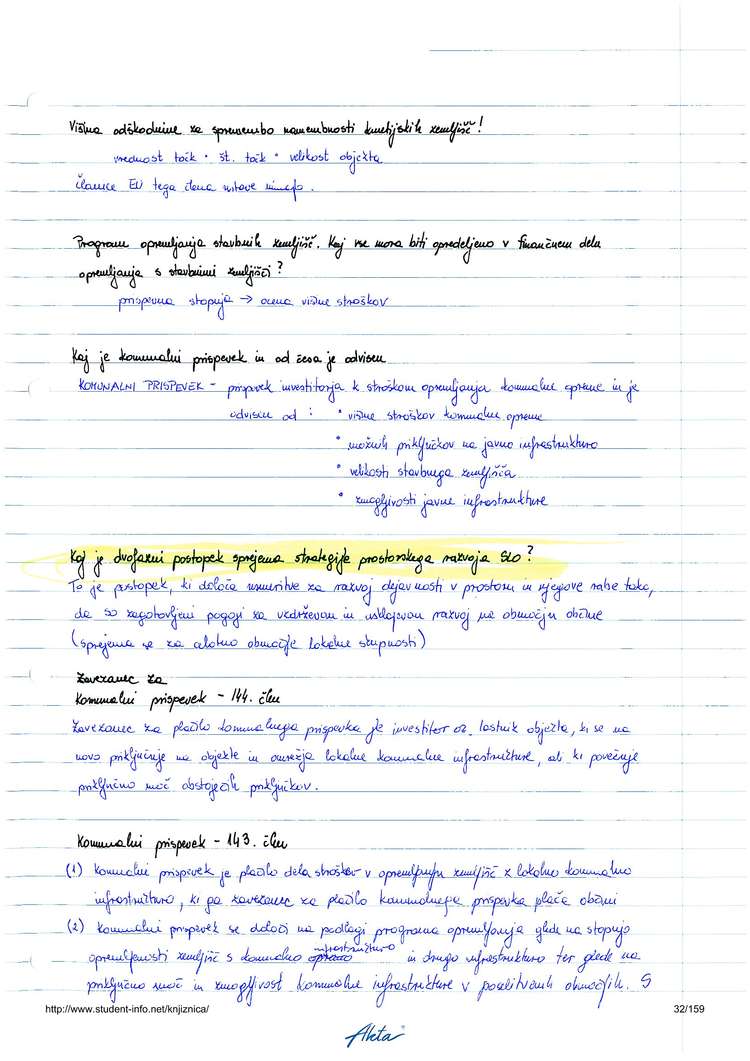 Višina odškodnine za spremembo namembnosti kmetijskih zemljišč!
vrednost točk · št. točk · velikost objekta
članice EU tega člena nimajo.
Program opremljanja stavbnih zemljišč. Kaj vse mora biti opredeljeno v finančnem delu
opremljanja s stavbnimi zemljišči?
prispevna stopnja → ocena višine stroškov
Kaj je komunalni prispevek in od česa je odvisen
KOMUNALNI PRISPEVEK - prispevek investitorja k stroškom opremljanja komunalne opreme in je
odvisen od : • višine stroškov komunalne opreme
• možnih priključkov na javno infrastrukturo
• velikosti stavbnega zemljišča
• zmogljivosti javne infrastrukture
Kaj je dvofazni postopek sprejema strategije prostorskega razvoja SLO?
To je postopek, ki določa usmeritve za razvoj dejavnosti v prostoru in njegove rabe tako,
da so zagotovljeni pogoji za vzdrževan in usklajevan razvoj na območju občine
(sprejema se za celotno območje lokalne skupnosti)
Zavezanec za
Komunalni prispevek - 144. člen
Zavezanec za plačilo komunalnega prispevka je investitor oz. lastnik objekta, ki se na
novo priključuje na objekte in omrežja lokalne komunalne infrastrukture, ali ki povečuje
priključno moč obstoječih priključkov.
Komunalni prispevek - 143. člen
(1) Komunalni prispevek je plačilo dela stroškov v opremljanju zemljišč z lokalno komunalno
infrastrukturo, ki ga zavezanec za plačilo komunalnega prispevka plača občini
(2) Komunalni prispevek se določi na podlagi programa opremljanja glede na stopnjo
opremljenosti zemljišč s komunalno infrastrukturo in drugo infrastrukturo ter glede na
priključno moč in zmogljivost komunalne infrastrukture v poselitvenih območjih. S
http://www.student-info.net/knjiznica/
32/159
Akta